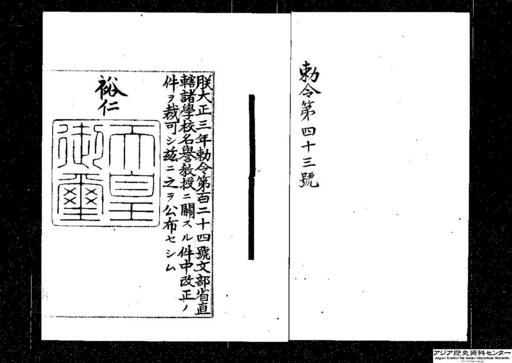 勅令第四十三號
朕大正三年勅令第百二十四號文部省直
轄諸學校名譽教授ニ關スル件中改正ノ
件ヲ裁可シ茲ニ之ヲ公布セシム
裕仁
天皇
御璽
アジア歴史資料センター
Japan Center for Asian Historical Records